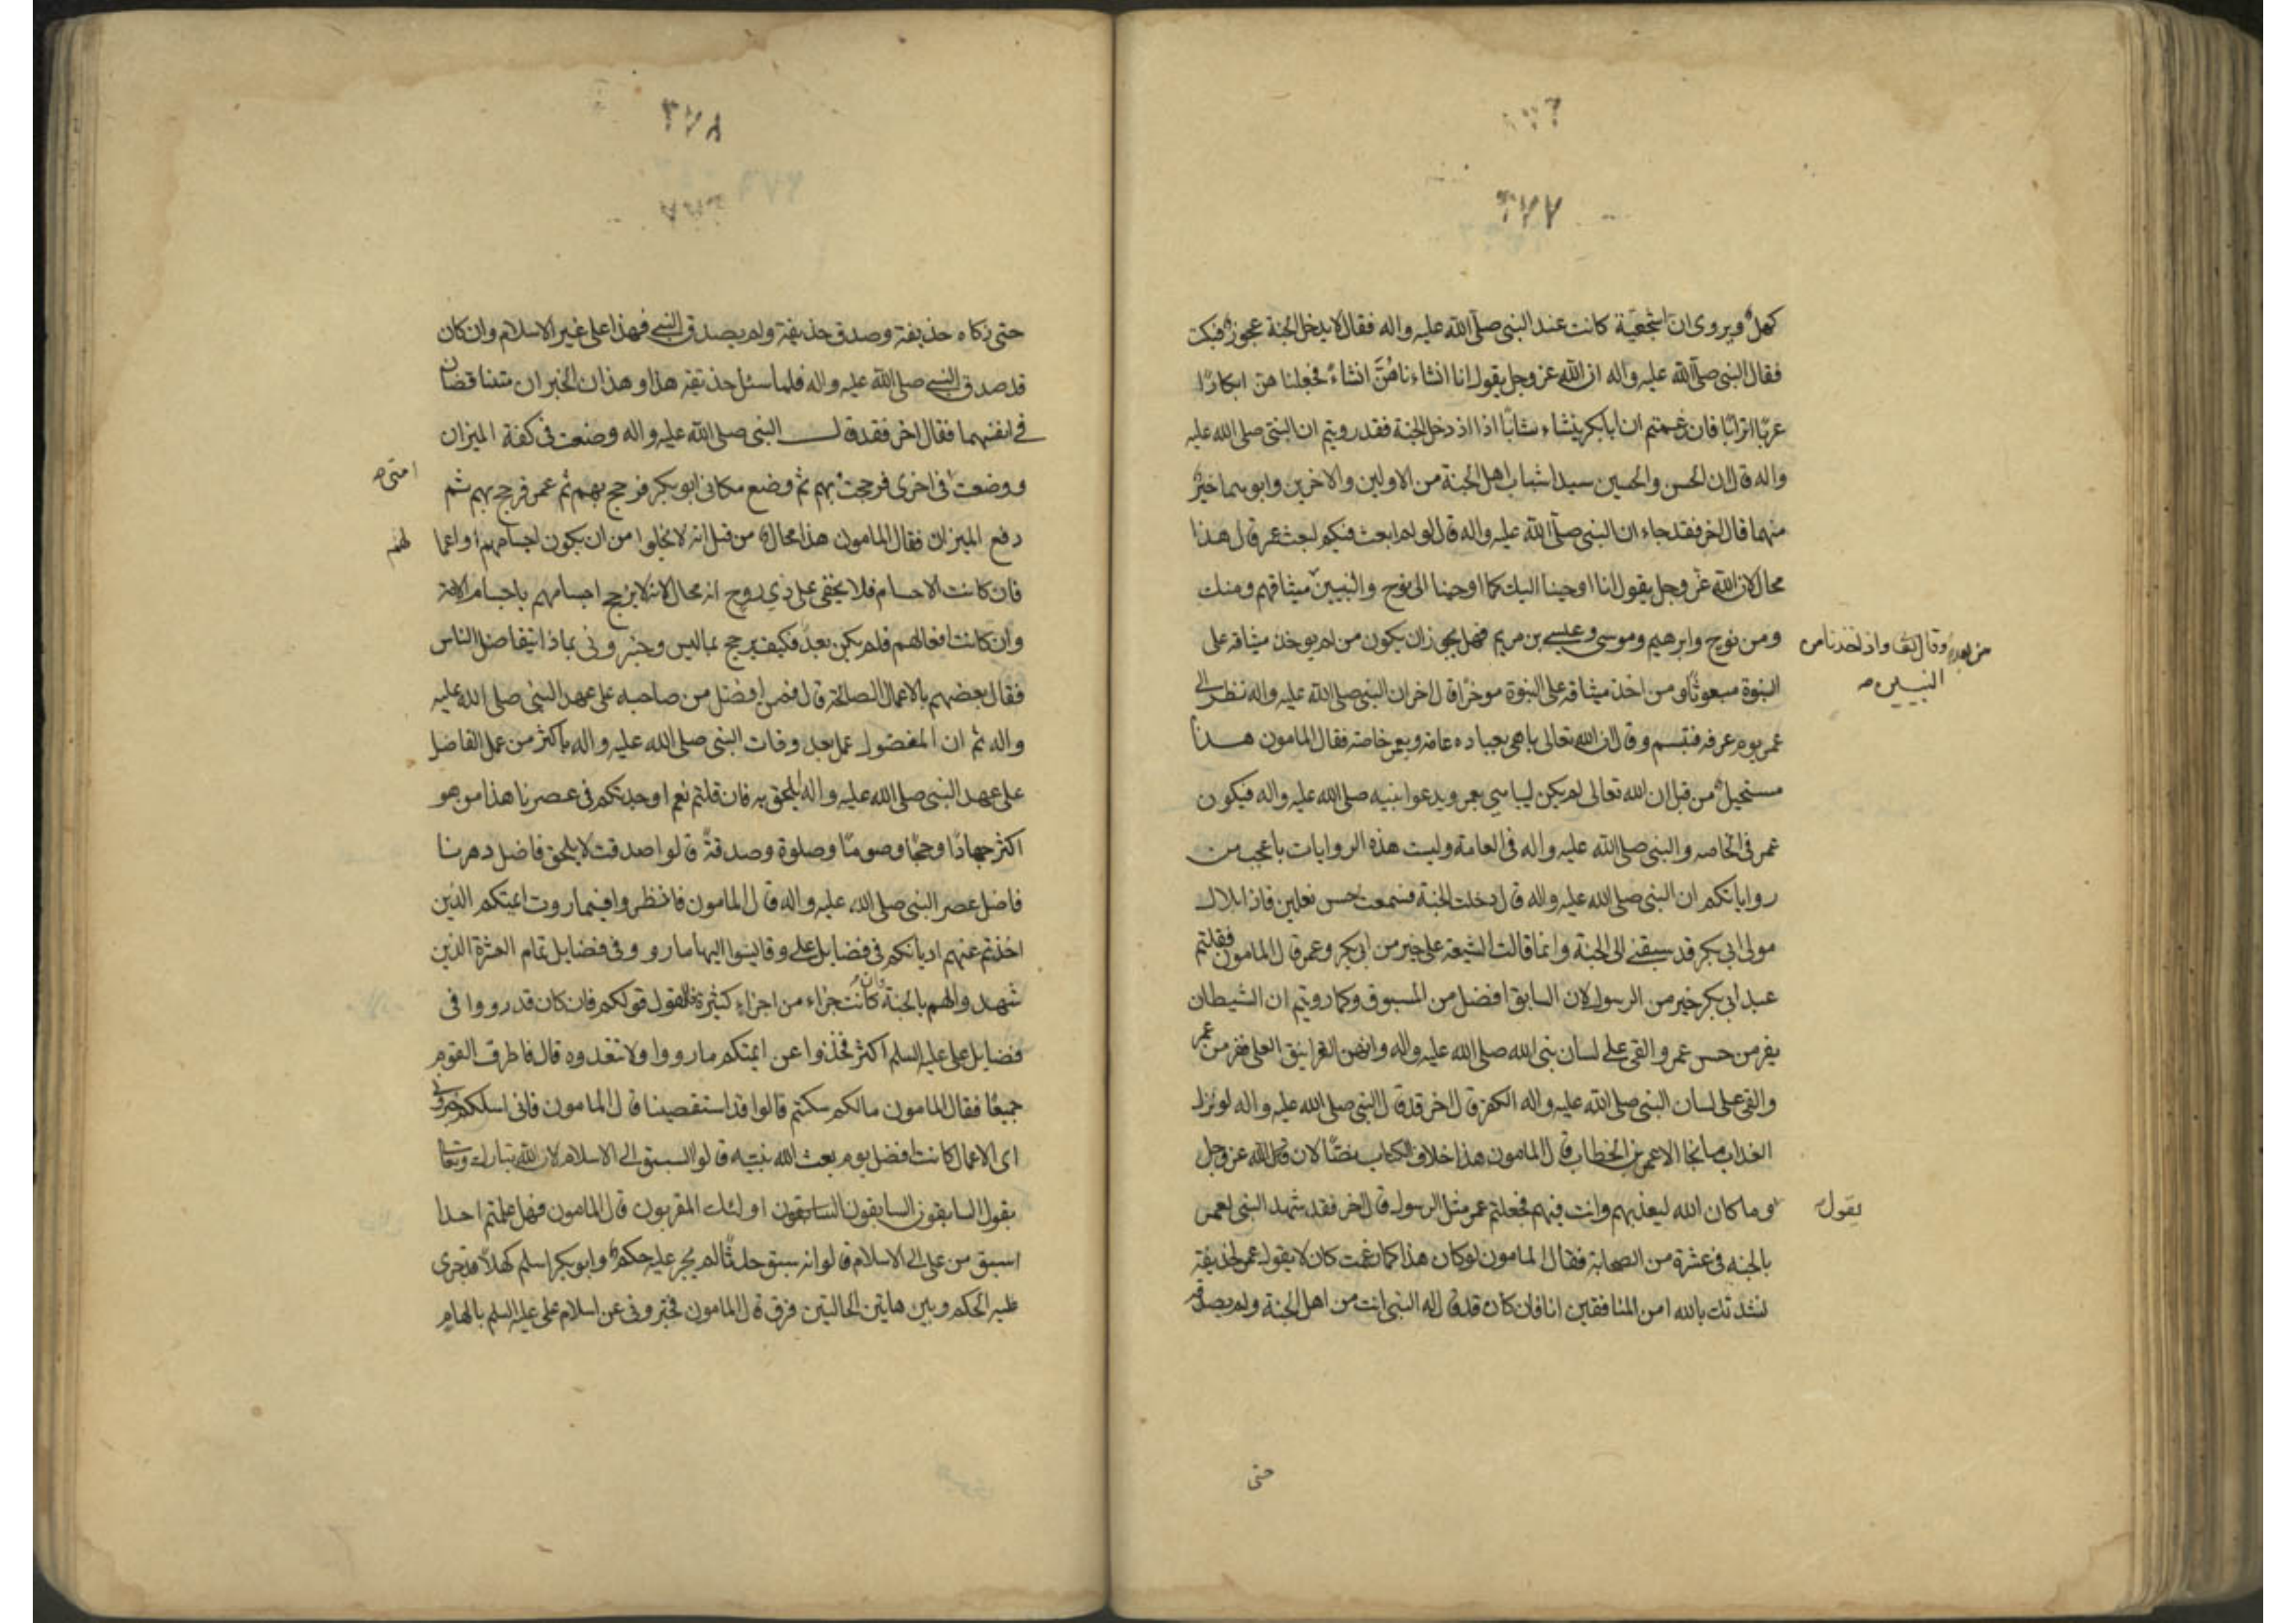 ٢٧٧
كهل ويروى ان اشجعية كانت عند النبى صلى الله عليه واله فقال لا يدخل الجنة عجوز فبكت
فقال النبى صلى الله عليه واله ان الله عز وجل يقول انا انشاناهن انشاء فجعلناهن ابكارا
عربا اترابا فان زعمتم ان ابابكر ينشاء شابا اذا دخل الجنة فقد رويتم ان النبى صلى الله عليه
واله قال ان الحسن والحسين سيدا شباب اهل الجنة من الاولين والاخرين وابوهما خير
منهما قال اخر فقد جاء ان النبى صلى الله عليه واله قال لو لم ابعث فيكم لبعث عمر قال هذا
محال لان الله عز وجل يقول انا اوحينا اليك كما اوحينا الى نوح والنبيين ميثاقهم ومنك
من بعده وقال تعالى واذ اخذنا من النبيين
ومن نوح وابرهيم وموسى وعيسى بن مريم فهل يجوز ان يكون من لم يوخذ ميثاقه على
النبوة مبعوثا ومن اخذ ميثاقه على النبوة موخرا قال اخر ان النبى صلى الله عليه واله نظر الى
عمر يوم عرفه فتبسم وقال ان الله تعالى باهى بعباده عامة وبعمر خاصة فقال المامون هذا
مستحيل من قبل ان الله تعالى لم يكن ليباهى بعمر ويدعوا نبيه صلى الله عليه واله فيكون
عمر فى الخاصه والنبى صلى الله عليه واله فى العامة وليست هذه الروايات باعجب من
رواياتكم ان النبى صلى الله عليه واله قال دخلت الجنة فسمعت حس نعلين فاذا بلال
مولى ابى بكر قد سبقنى الى الجنة وانما قالت الشيعة على خير من ابى بكر وعمر قال المامون فقلتم
عبد ابى بكر خير من الرسول لان السابق افضل من المسبوق وكما رويتم ان الشيطان
يفر من حس عمر والقى على لسان نبى الله صلى الله عليه واله وانهن الغرانيق العلى ففر من عمر
والقى على لسان النبى صلى الله عليه واله الكفر قال اخر قد قال النبى صلى الله عليه واله لو نزل
العذاب ما نجا الا عمر بن الخطاب قال المامون هذا خلاف الكتاب نصا لان الله عز وجل
يقول
وما كان الله ليعذبهم وانت فيهم فجعلتم عمر مثل الرسول قال اخر فقد شهد النبى لعمر
بالجنه فى عشرة من الصحابة فقال المامون لو كان هذا كما زعمت كان لا يقول عمر لحذيفة
نشدتك بالله امن المنافقين انا فان كان قد قال له النبى انت من اهل الجنة ولم يصدقه
حتى
٢٧٨
حتى زكاه حذيفة وصدق حذيفة ولم يصدق النبى فهذا على غير الاسلام وان كان
قد صدق النبى صلى الله عليه واله فلما سئل حذيفة هذا وهذان الخبران متناقضان
فى انفسهما فقال اخر فقد قال النبى صلى الله عليه واله وضعت فى كفة الميزان
امتى
ووضعت فى اخرى فرجحت بهم ثم وضع مكانى ابوبكر فرجح بهم ثم عمر فرجح بهم ثم
رفع الميزان فقال المامون هذا محال من قبل انه لا يخلوا من ان يكون اجسامهم او اعما
لهم
فان كانت الاجسام فلا يخفى على ذى روح انه محال لانه لا يرجح اجسامهم باجسام الامة
وان كانت افعالهم فلم يكن بعد فكيف يرجح بما ليس وخبرونى بماذا يتفاضل الناس
فقال بعضهم بالاعمال الصالحة قال فمن افضل من صاحبه على عهد النبى صلى الله عليه
واله ثم ان المفضول عمل بعد وفات النبى صلى الله عليه واله باكثر من عمل الفاضل
على عهد النبى صلى الله عليه واله ايلحق به فان قلتم نعم اوجدتكم فى عصرنا هذا من هو
اكثر جهادا وحجا وصوما وصلوة وصدقة قالوا صدقت لا يلحق فاضل دهرنا
فاضل عصر النبى صلى الله عليه واله قال المامون فانظروا فيما روت ائمتكم الذين
اخذتم عنهم اديانكم فى فضايل على وقايسوا اليها ما رووا فى فضايل تمام العشرة الذين
شهدوا لهم بالجنة وان كانت جزاء من اجزاء كثيرة فالقول قولكم فان كان قد رووا فى
فضايل على عليه السلم اكثر فخذوا عن ائمتكم ما رووا ولا تعدوه قال فاطرق القوم
جميعا فقال المامون مالكم سكتم قالوا قد استقصينا قال المامون فانى اسئلكم خبرونى
اى الاعمال كانت افضل يوم بعث الله نبيه قالوا السبق الى الاسلام لان الله تبارك وتعالى
يقول السابقون السابقون اولئك المقربون قال المامون فهل علمتم احدا
اسبق من على الى الاسلام قالوا انه سبق حدثا لم يجر عليه حكم وابوبكر اسلم كهلا قد جرى
عليه الحكم وبين هاتين الحالتين فرق قال المامون فخبرونى عن اسلام على عليه السلم بالهام